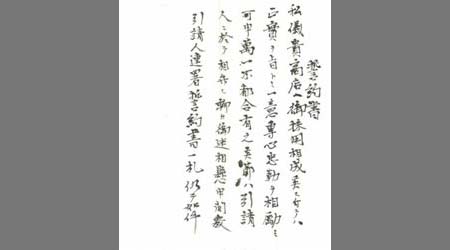 誓約書
私儀貴商店ヘ御採用相成候上ハ
正實ヲ旨トシ一意専心忠勤ヲ相励ミ
可申萬一不都合有之候節ハ引請
人ニ於テ相弁シ聊カ御迷相懸申間敷
引請人連署誓約書一札仍テ如件